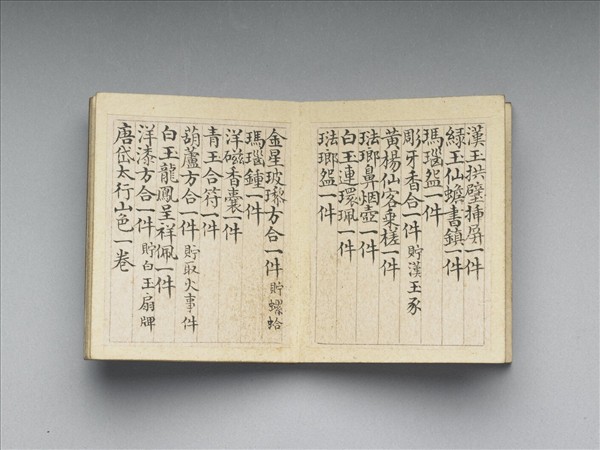 漢玉拱璧揷屏一件
綠玉仙蟾書鎮一件
瑪瑙盌一件
彫牙香合一件 貯漢玉豕
黃楊仙客乘槎一件
琺瑯鼻烟壺一件
白玉連環珮一件
琺瑯盌一件
金星玻瓈方合一件 貯 蛤
瑪瑙鍾一件
洋磁香囊一件
青玉合符一件
葫蘆方合一件 貯取火事件
白玉龍鳳呈祥佩一件
洋漆方合一件 貯白玉扇牌
唐岱太行山色一卷